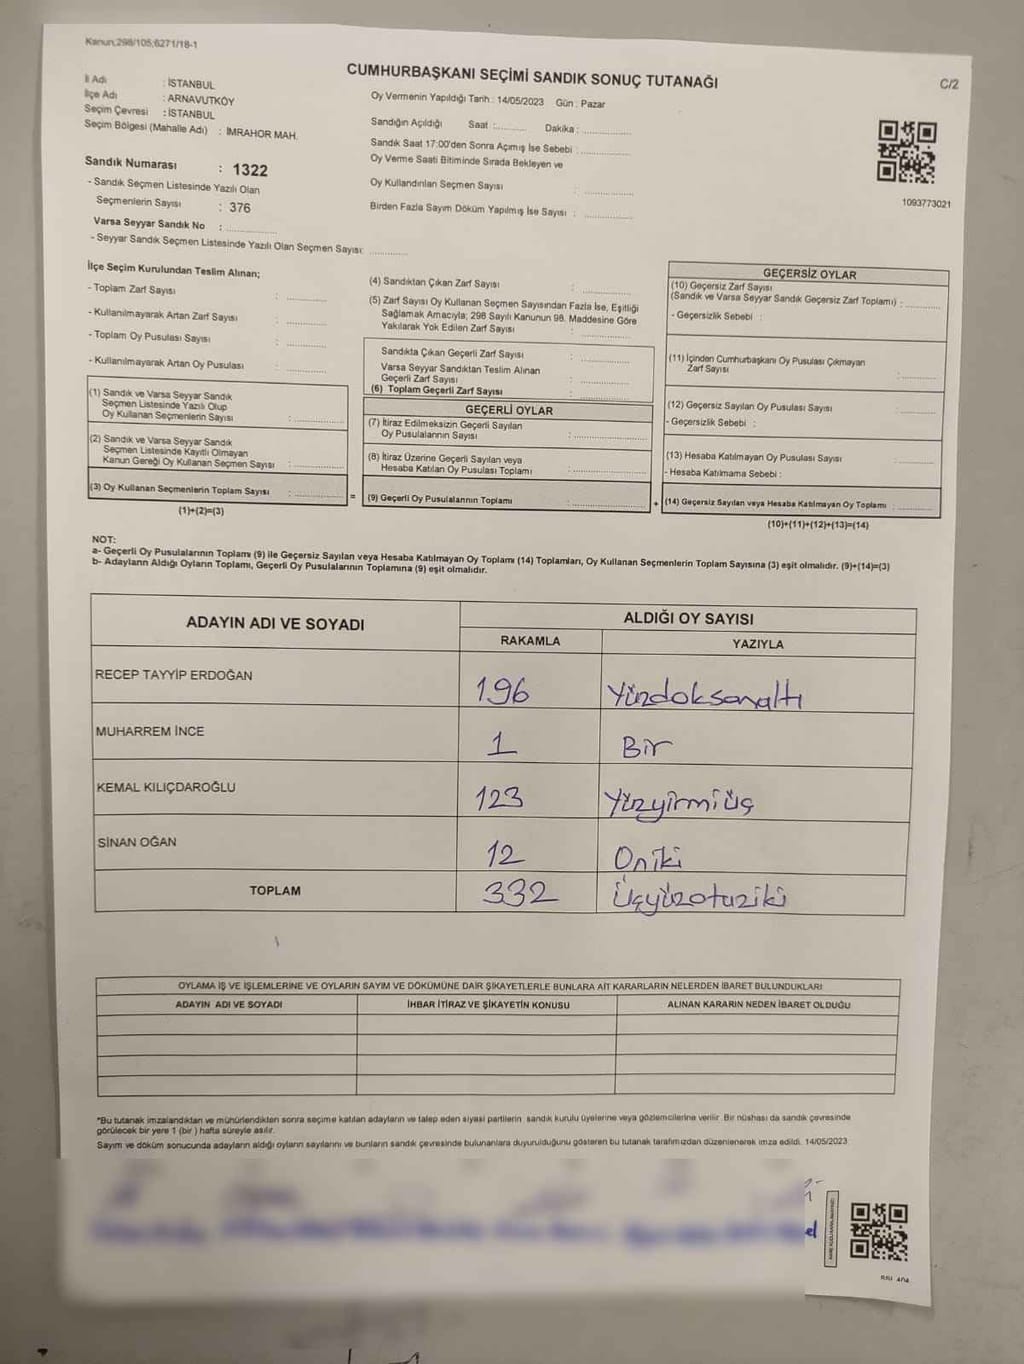 Kanun;298/105;6271/18-1
CUMHURBAŞKANI SEÇİMİ SANDIK SONUÇ TUTANAĞI
C/2
İl Adı : İSTANBUL
İlçe Adı : ARNAVUTKÖY
Seçim Çevresi : İSTANBUL
Seçim Bölgesi (Mahalle Adı) : İMRAHOR MAH.
Oy Vermenin Yapıldığı Tarih : 14/05/2023 Gün : Pazar
Sandığın Açıldığı Saat :.......... Dakika : ..............
Sandık Saat 17:00'den Sonra Açımış İse Sebebi : ..............
Oy Verme Saati Bitiminde Sırada Bekleyen ve
Oy Kullandırılan Seçmen Sayısı : ..............
Birden Fazla Sayım Döküm Yapılmış İse Sayısı : ..............
1093773021
Sandık Numarası : 1322
- Sandık Seçmen Listesinde Yazılı Olan
Seçmenlerin Sayısı : 376
Varsa Seyyar Sandık No : ..............
- Seyyar Sandık Seçmen Listesinde Yazılı Olan Seçmen Sayısı: ..............
İlçe Seçim Kurulundan Teslim Alınan;
- Toplam Zarf Sayısı : ..............
- Kullanılmayarak Artan Zarf Sayısı : ..............
- Toplam Oy Pusulası Sayısı : ..............
- Kullanılmayarak Artan Oy Pusulası : ..............
(1) Sandık ve Varsa Seyyar Sandık
Seçmen Listesinde Yazılı Olup
Oy Kullanan Seçmenlerin Sayısı : ..............
(2) Sandık ve Varsa Seyyar Sandık
Seçmen Listesinde Kayıtlı Olmayan
Kanun Gereği Oy Kullanan Seçmen Sayısı : ..............
(3) Oy Kullanan Seçmenlerin Toplam Sayısı : .............. =
(1)+(2)=(3)
(4) Sandıktan Çıkan Zarf Sayısı : ..............
(5) Zarf Sayısı Oy Kullanan Seçmen Sayısından Fazla İse, Eşitliği
Sağlamak Amacıyla; 298 Sayılı Kanunun 98. Maddesine Göre
Yakılarak Yok Edilen Zarf Sayısı : ..............
Sandıkta Çıkan Geçerli Zarf Sayısı : ..............
Varsa Seyyar Sandıktan Teslim Alınan
Geçerli Zarf Sayısı : ..............
(6) Toplam Geçerli Zarf Sayısı : ..............
GEÇERLİ OYLAR
(7) İtiraz Edilmeksizin Geçerli Sayılan
Oy Pusulalarının Sayısı : ..............
(8) İtiraz Üzerine Geçerli Sayılan veya
Hesaba Katılan Oy Pusulası Toplamı : ..............
(9) Geçerli Oy Pusulalarının Toplamı : .............. +
GEÇERSİZ OYLAR
(10) Geçersiz Zarf Sayısı
(Sandık ve Varsa Seyyar Sandık Geçersiz Zarf Toplamı) : ..............
- Geçersizlik Sebebi :
(11) İçinden Cumhurbaşkanı Oy Pusulası Çıkmayan
Zarf Sayısı : ..............
(12) Geçersiz Sayılan Oy Pusulası Sayısı : ..............
- Geçersizlik Sebebi :
(13) Hesaba Katılmayan Oy Pusulası Sayısı : ..............
- Hesaba Katılmama Sebebi :
(14) Geçersiz Sayılan veya Hesaba Katılmayan Oy Toplamı : ..............
(10)+(11)+(12)+(13)=(14)
NOT:
a- Geçerli Oy Pusulalarının Toplamı (9) ile Geçersiz Sayılan veya Hesaba Katılmayan Oy Toplamı (14) Toplamları, Oy Kullanan Seçmenlerin Toplam Sayısına (3) eşit olmalıdır. (9)+(14)=(3)
b- Adayların Aldığı Oyların Toplamı, Geçerli Oy Pusulalarının Toplamına (9) eşit olmalıdır.
ADAYIN ADI VE SOYADI
ALDIĞI OY SAYISI
RAKAMLA YAZIYLA
RECEP TAYYİP ERDOĞAN 196 Yüzdoksanaltı
MUHARREM İNCE 1 Bir
KEMAL KILIÇDAROĞLU 123 Yüzyirmiüç
SİNAN OĞAN 12 Oniki
TOPLAM 332 Üçyüzotuziki
OYLAMA İŞ VE İŞLEMLERİNE VE OYLARIN SAYIM VE DÖKÜMÜNE DAİR ŞİKAYETLERLE BUNLARA AİT KARARLARIN NELERDEN İBARET BULUNDUKLARI
ADAYIN ADI VE SOYADI İHBAR İTİRAZ VE ŞİKAYETİN KONUSU ALINAN KARARIN NEDEN İBARET OLDUĞU
*Bu tutanak imzalandıktan ve mühürlendikten sonra seçime katılan adayların ve talep eden siyasi partilerin sandık kurulu üyelerine veya gözlemcilerine verilir. Bir nüshası da sandık çevresinde
görülecek bir yere 1 (bir) hafta süreyle asılır.
Sayım ve döküm sonucunda adayların aldığı oyların sayılarını ve bunların sandık çevresinde bulunanlara duyurulduğunu gösteren bu tutanak tarafımızdan düzenlenerek imza edildi. 14/05/2023